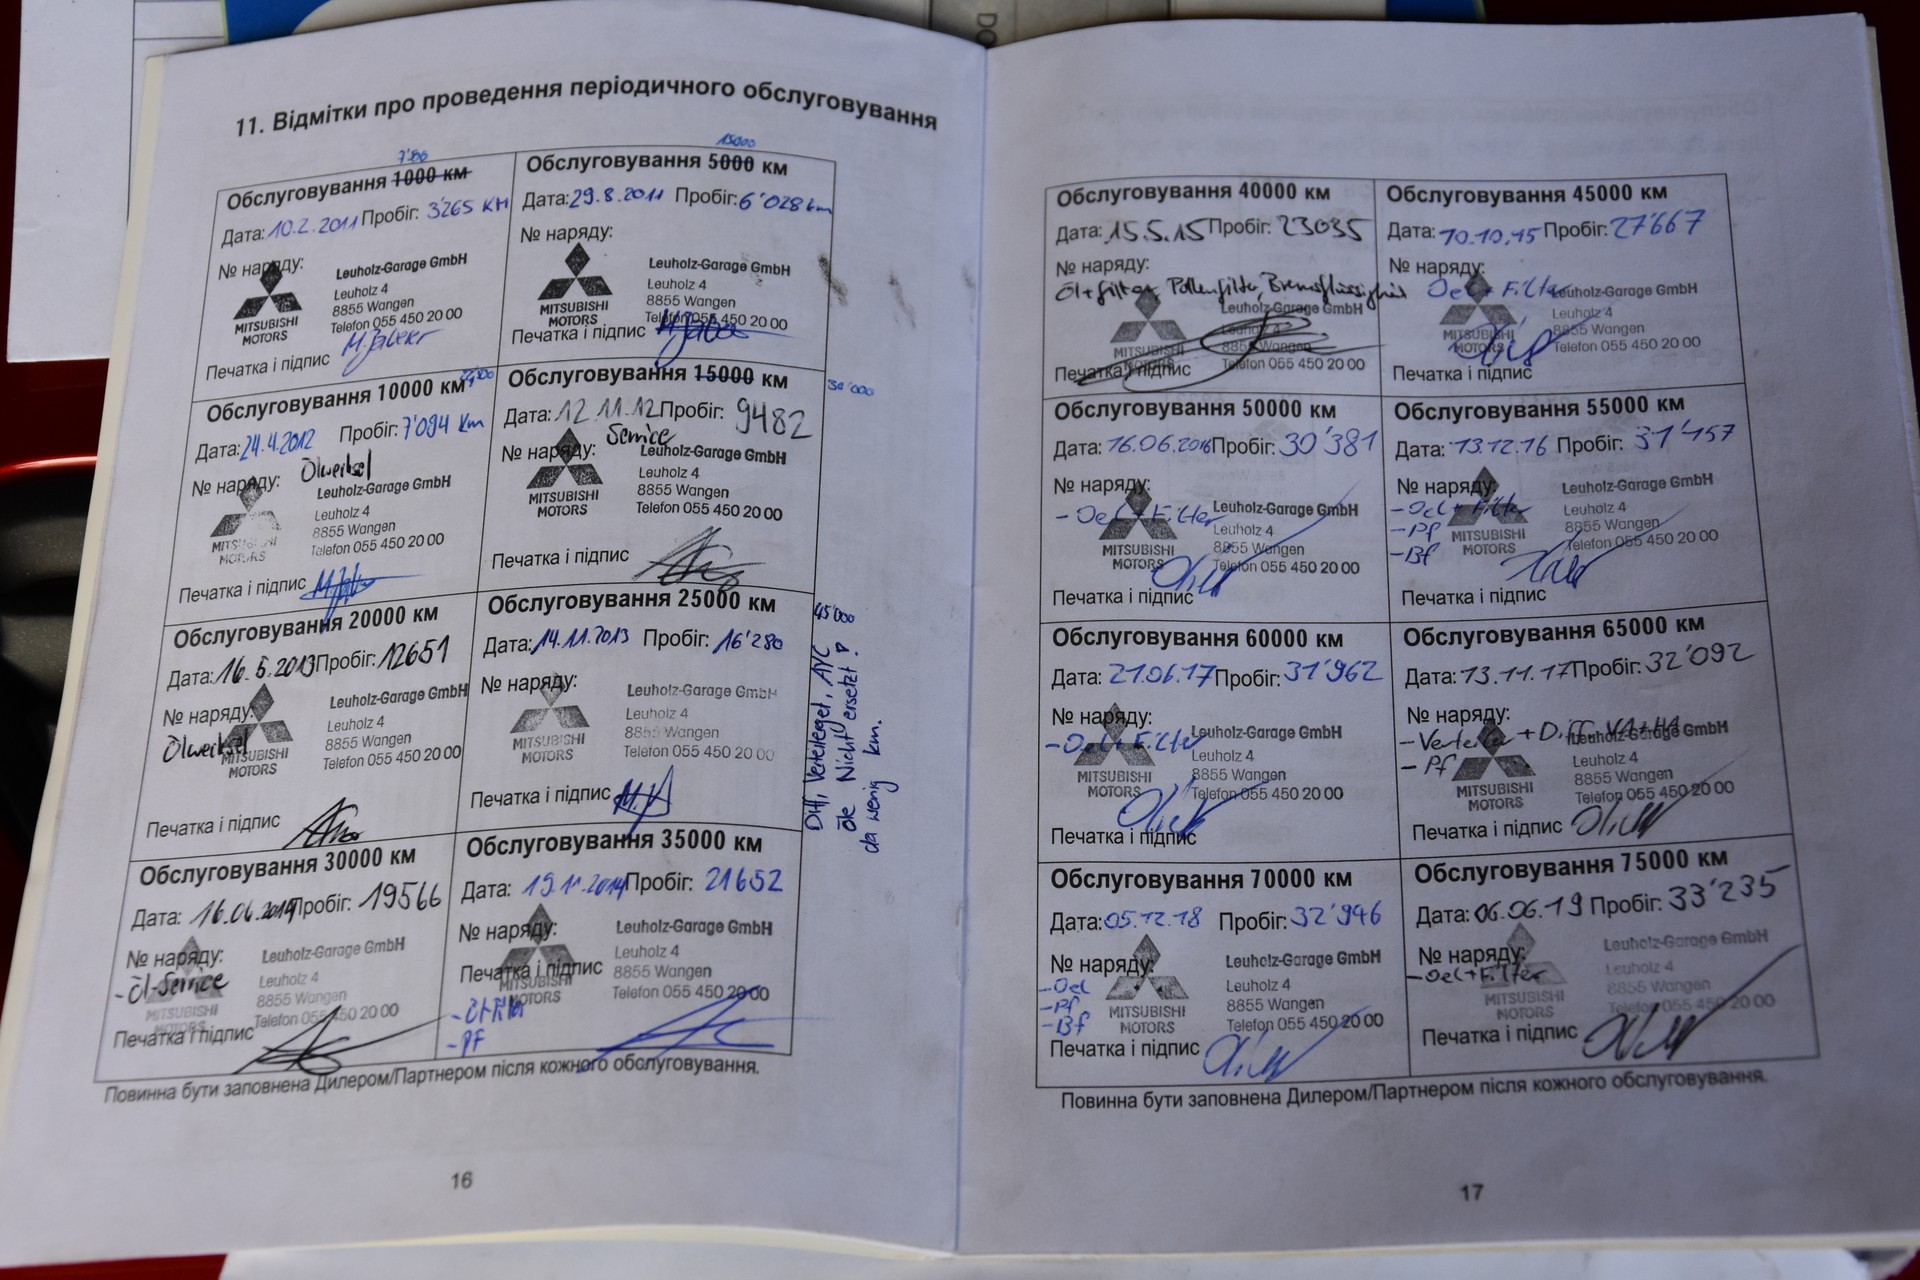 DO
11. Відмітки про проведення періодичного обслуговування
7'500
Обслуговування 1000 км
Дата: 10.2.2011 Пробіг: 3'265 KM
№ наряду:
Leuholz-Garage GmbH
Leuholz 4
8855 Wangen
Telefon 055 450 20 00
MITSUBISHI
MOTORS
Печатка і підпис
15000
Обслуговування 5000 км
Дата: 29.8.2011 Пробіг: 6'028 km
№ наряду:
Leuholz-Garage GmbH
Leuholz 4
8855 Wangen
Telefon 055 450 20 00
MITSUBISHI
MOTORS
Печатка і підпис
Обслуговування 10000 км 22'500
Дата: 24.4.2012 Пробіг: 7'094 Km
Ölweksel
№ наряду:
Leuholz-Garage GmbH
Leuholz 4
8855 Wangen
Telefon 055 450 20 00
MITSUBISHI
MOTORS
Печатка і підпис
Обслуговування 15000 км 30'000
Дата: 12.11.12 Пробіг: 9482
Service
№ наряду:
Leuholz-Garage GmbH
Leuholz 4
8855 Wangen
Telefon 055 450 20 00
MITSUBISHI
MOTORS
Печатка і підпис
Обслуговування 20000 км
Дата: 16.5.2013 Пробіг: 12651
№ наряду:
Ölweksel
Leuholz-Garage GmbH
Leuholz 4
8855 Wangen
Telefon 055 450 20 00
MITSUBISHI
MOTORS
Печатка і підпис
Обслуговування 25000 км
45'000
Дата: 14.11.2013 Пробіг: 16'280
№ наряду:
Leuholz-Garage GmbH
Leuholz 4
8855 Wangen
Telefon 055 450 20 00
MITSUBISHI
MOTORS
Печатка і підпис
Diff, Verteileget, AYC
Öle Nicht ersetzt!
da wenig km.
Обслуговування 30000 км
Дата: 16.06.2014 Пробіг: 19566
№ наряду:
-Öl-Service
Leuholz-Garage GmbH
Leuholz 4
8855 Wangen
Telefon 055 450 20 00
MITSUBISHI
MOTORS
Печатка і підпис
Обслуговування 35000 км
Дата: 19.11.2014 Пробіг: 21652
№ наряду:
Leuholz-Garage GmbH
Leuholz 4
8855 Wangen
Telefon 055 450 20 00
Печатка і підпис
MITSUBISHI
MOTORS
- PF
Повинна бути заповнена Дилером/Партнером після кожного обслуговування.
16
Обслуговування 40000 км
Дата: 15.5.15 Пробіг: 23035
№ наряду:
Öl+filter, Pollenfilter, Bremsflüssigkeit
Leuholz-Garage GmbH
Leuholz 4
8855 Wangen
Telefon 055 450 20 00
MITSUBISHI
MOTORS
Печатка і підпис
Обслуговування 45000 км
Дата: 10.10.15 Пробіг: 27'667
№ наряду:
Oel + Filter
Leuholz-Garage GmbH
Leuholz 4
8855 Wangen
Telefon 055 450 20 00
MITSUBISHI
MOTORS
Печатка і підпис
Обслуговування 50000 км
Дата: 16.06.2016 Пробіг: 30'381
№ наряду:
- Oel + Filter
Leuholz-Garage GmbH
Leuholz 4
8855 Wangen
Telefon 055 450 20 00
MITSUBISHI
MOTORS
Печатка і підпис
Обслуговування 55000 км
Дата: 13.12.16 Пробіг: 31'457
№ наряду:
- Oel + Filter
- Pf
- Bf
Leuholz-Garage GmbH
Leuholz 4
8855 Wangen
Telefon 055 450 20 00
MITSUBISHI
MOTORS
Печатка і підпис
Обслуговування 60000 км
Дата: 21.06.17 Пробіг: 31'962
№ наряду:
- Oel + Filter
Leuholz-Garage GmbH
Leuholz 4
8855 Wangen
Telefon 055 450 20 00
MITSUBISHI
MOTORS
Печатка і підпис
Обслуговування 65000 км
Дата: 13.11.17 Пробіг: 32'092
№ наряду:
- Verteiler + Diff. VA+HA
- Pf
Leuholz-Garage GmbH
Leuholz 4
8855 Wangen
Telefon 055 450 20 00
MITSUBISHI
MOTORS
Печатка і підпис
Обслуговування 70000 км
Дата: 05.12.18 Пробіг: 32'946
№ наряду:
- Oel
- Pf
- Bf
Leuholz-Garage GmbH
Leuholz 4
8855 Wangen
Telefon 055 450 20 00
MITSUBISHI
MOTORS
Печатка і підпис
Обслуговування 75000 км
Дата: 06.06.19 Пробіг: 33'235
№ наряду:
- Oel + Filter
Leuholz-Garage GmbH
Leuholz 4
8855 Wangen
Telefon 055 450 20 00
MITSUBISHI
MOTORS
Печатка і підпис
Повинна бути заповнена Дилером/Партнером після кожного обслуговування.
17